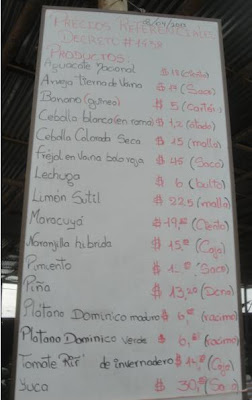 06/04/2011
PRECIOS REFERENCIALES
DECRETO #1438
PRODUCTOS:
Aguacate Nacional $ 18 (Caja)
Arveja Tierna de Vaina $ (Saco)
Banano (guineo) $ 5 (cartón)
Cebolla blanca (en rama) $ 1,2 (atado)
Cebolla Colorada Seca $ 15 (malla)
frejol en Vaina bolo rojo $ 45 (Saco)
Lechuga $ 6 (bulto)
Limón Sutil $ 22.5 (malla)
Maracuyá $ 19, (Ciento)
Naranjilla hibrida $ 15, (Caja)
Pimiento $ (Saco)
Piña $ 13,20 (Dcna)
Plátano Dominico maduro $ 6, (racimo)
Plátano Dominico verde $ 6, (racimo)
Tomate Riñ de invernadero $ 14, (Caja)
Yuca $ 30, (Saco)